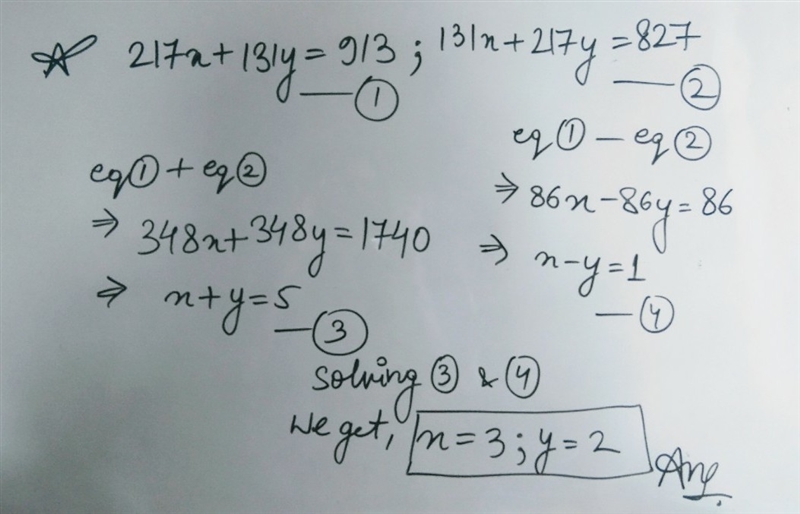 217x+131y=913 ; 131x+217y=827
—① —②
eq①+eq②
⇒ 348x+348y=1740
⇒ x+y=5
—③
eq①—eq②
⇒ 86x-86y=86
⇒ x-y=1
—④
Solving ③ & ④
We get, x=3 ; y=2
Ans.